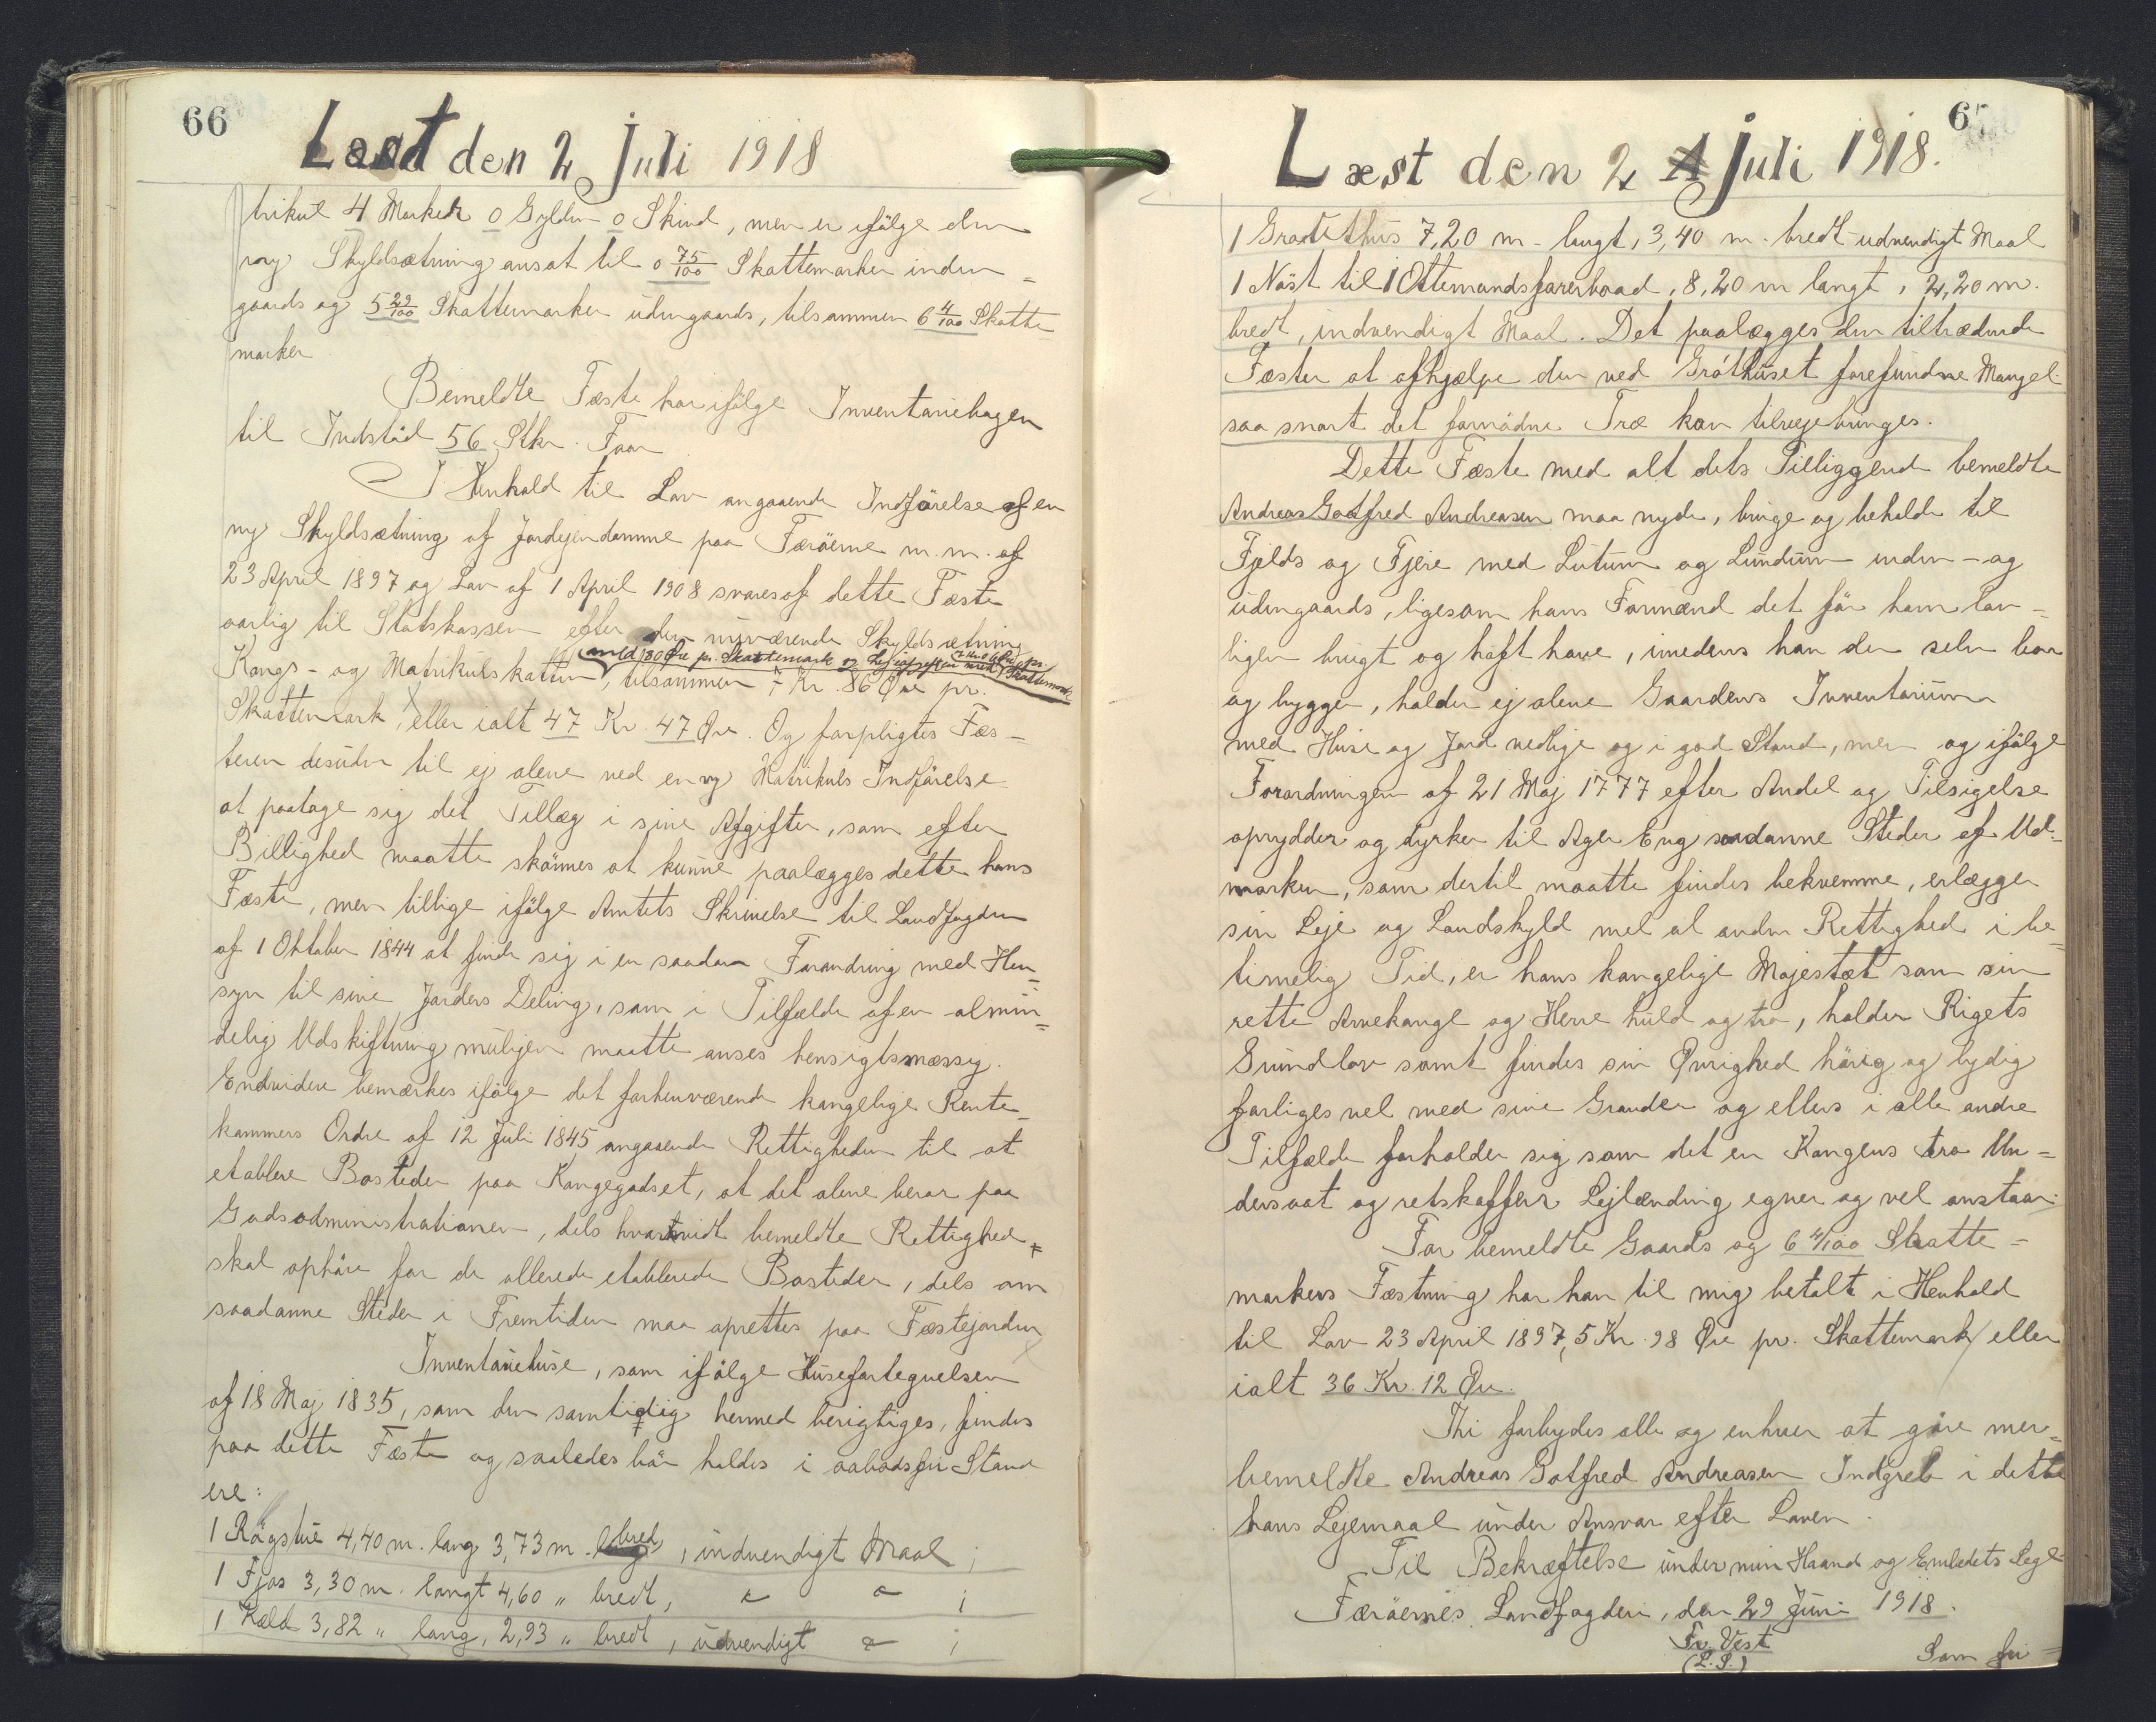 66
Læst den 2 Juli 1918
trikul 4 Marker 0 Gylden 0 Skind, men er ifölge den
ny Skyldsætning ansat til 0 75/100 Skattemarker inden=
gaards og 5 29/100 Skattemarker udengaards, tilsammen 6 4/100 Skatte=
marker
Bemeldte Fæste har ifölge Inventariebogen
til Indstød 56 Stkr. Faar
I Henhold til Lov angaaende Indförelse af en
ny Skyldsætning af Jordejendomme paa Færöerne m.m. af
23 April 1897 og Lov af 1 April 1908 svares af dette Fæste
aarlig til Statskassen efter den nuværende Skyldsætning
med 80 Øre pr. Skattemark og Lejeafgiften med pr. Skattemark
Kongs- og Matrikulskatten, tilsammen 7 Kr. 86 Øre pr.
Skattemark, eller ialt 47 Kr. 47 Øre. Og forpligtes Fæs-
teren desuden til ej alene ved en ny Matrikuls Indförelse
at paatage sig det Tillæg i sine Afgifter, som efter
Billighed maatte skönnes at kunne paalægges dette hans
Fæste, men tillige ifölge Amtets Skrivelse til Landfogden
af 1 Oktober 1844 at finde sig i en saadan Forandring med Hen=
syn til sine Jorders Deling, som i Tilfælde af en almin=
delig Udskiftning muligen maatte anses hensigtsmæssig.
Endvidere bemærkes ifölge det forhenværende kongelige Rente=
kammers Ordre af 12 Juli 1845 angaaende Rettigheden til at
etablere Bosteder paa Kongegodset, at det alene beror paa
Godsadministrationen, dels hvorvidt bemeldte Rettighed
skal ophöre for de allerede etablerede Bosteder, dels om
saadanne Steder i Fremtiden maa oprettes paa Fæstejorden
Inventariehuse, som ifölge Husefortegnelsen
af 18 Maj 1835, som den samtidig hermed berigtiges, findes
paa dette Fæste og saaledes bör holdes i aabodsfri Stand
ere:
1 Rögstue 4,40 m. lang 3,73 m. bred, indvendigt Maal ;
1 Fjøs 3,30 m. langt 4,60 " bredt, " " ;
1 Kæld 3,82 " lang, 2,93 " bredt, udvendigt " ;
6
Læst den 2 Juli 1918.
1 Grothus 7,20 m. langt, 3,40 m. bredt udvendigt Maal
1 Nöst til 1 Ottemandsfarerbaad, 8,20 m langt, 2,20 m.
bredt, indvendigt Maal. Det paalægges den tiltrædende
Fæster at afhjælpe den ved Gróthuset forefundne Mangel
saa snart det fornödne Træ kan tilvejebringes.
Dette Fæste med alt dets Tilliggende bemeldte
Andreas Gotfred Andreasen maa nyde, bruge og beholde til
Fjelds og Fjere med Lutum og Lundum inden- og
udengaards, ligesom hans Formænd det för ham lov=
ligen brugt og haft have, imedens han den selv bor
og bygger, holder ej alene Gaardens Inventarium
med Huse og Jord vedlige og i god Stand, men og ifölge
Forordningen af 21 Maj 1777 efter Andel og Tilsigelse
oprydder og dyrker til Ager Eng saadanne Steder af Ud=
marken, som dertil maatte findes bekvemme, erlægger
sin Leje og Landskyld med al anden Rettighed i be=
timelig Tid, er hans kongelige Majestæt som sin
rette Arvekonge og Herre huld og tro, holder Rigets
Grundlov samt findes sin Øvrighed hörig og lydig
forliges vel med sine Grander og ellers i alle andre
Tilfælde forholder sig som det en Kongens tro Un=
dersaat og retskaffen Lejlænding egner og vel anstaar.
For bemeldte Gaards og 6 4/100 Skatte=
markers Fæstning har han til mig betalt i Henhold
til Lov 23 April 1897, 5 Kr. 98 Øre pr. Skattemark eller
ialt 36 Kr. 12 Øre.
Thi forbydes alle og enhver at göre mer=
bemeldte Andreas Gotfred Andreasen Indgreb i dette
hans Lejemaal under Ansvar efter Loven.
Til Bekræftelse under min Haand og Embedets Segl
Færöernes Landfogderi, den 29 Juni 1918.
Fr. Vest
(L.S.)
Som fri=